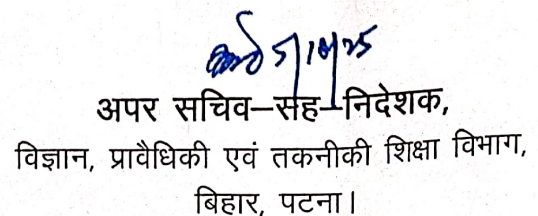 अपर सचिव–सह–निदेशक,
विज्ञान, प्रावैधिकी एवं तकनीकी शिक्षा विभाग,
बिहार, पटना।